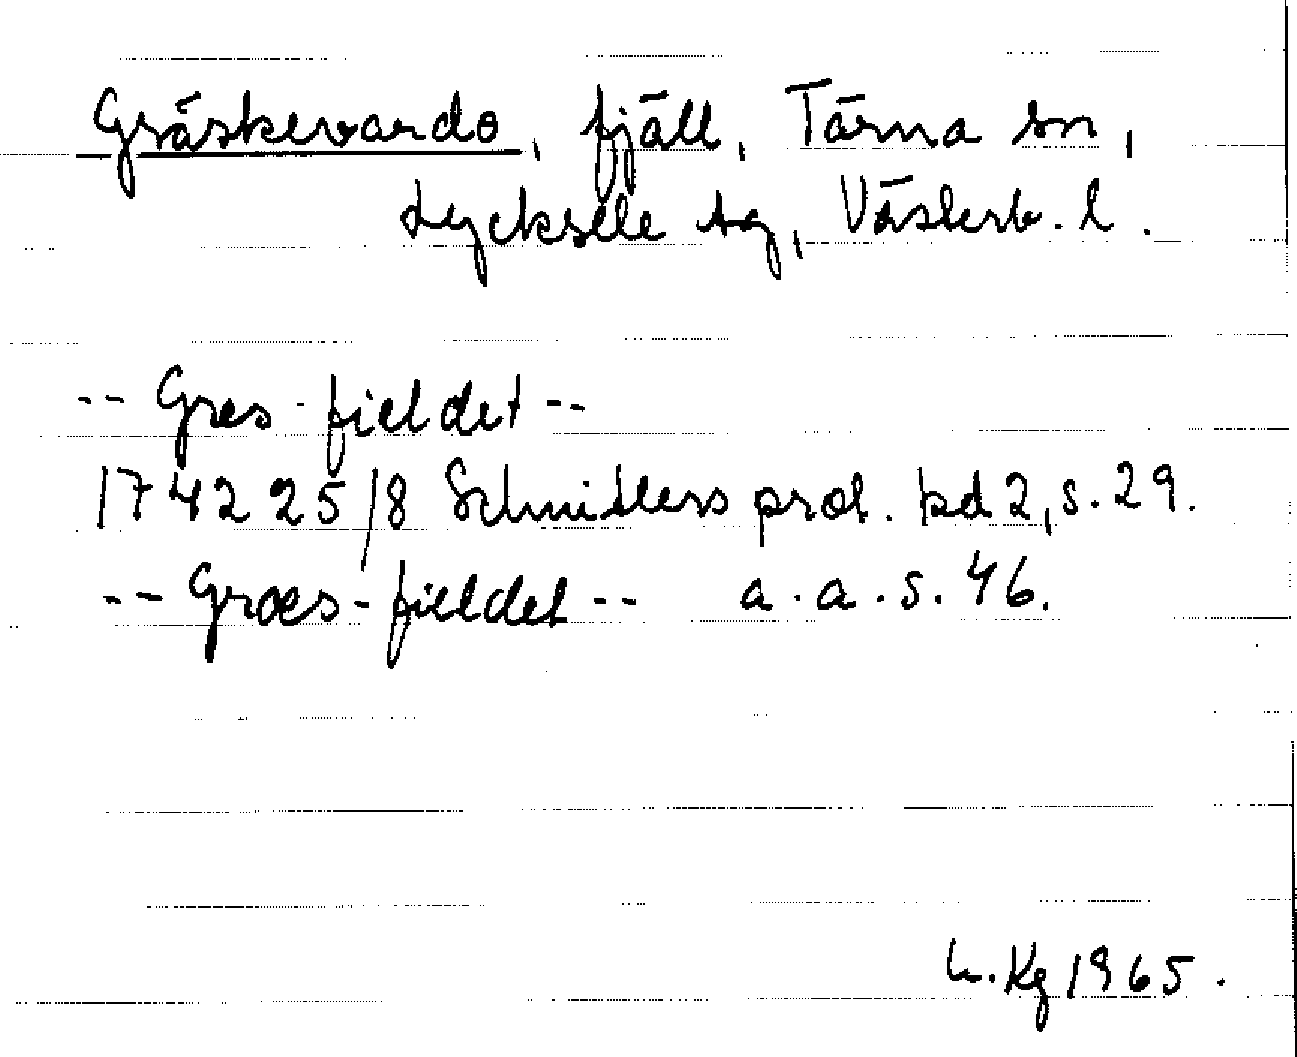 Gräskevardo, fjäll, Tärna sn,
Lycksele tg, Västerb. l.
-- Gres-fieldet --
1742 25/8 Schnitlers prot. bd 2, s. 29.
-- Groes-fieldet -- a. a. s. 46.
L. Kg 1965.